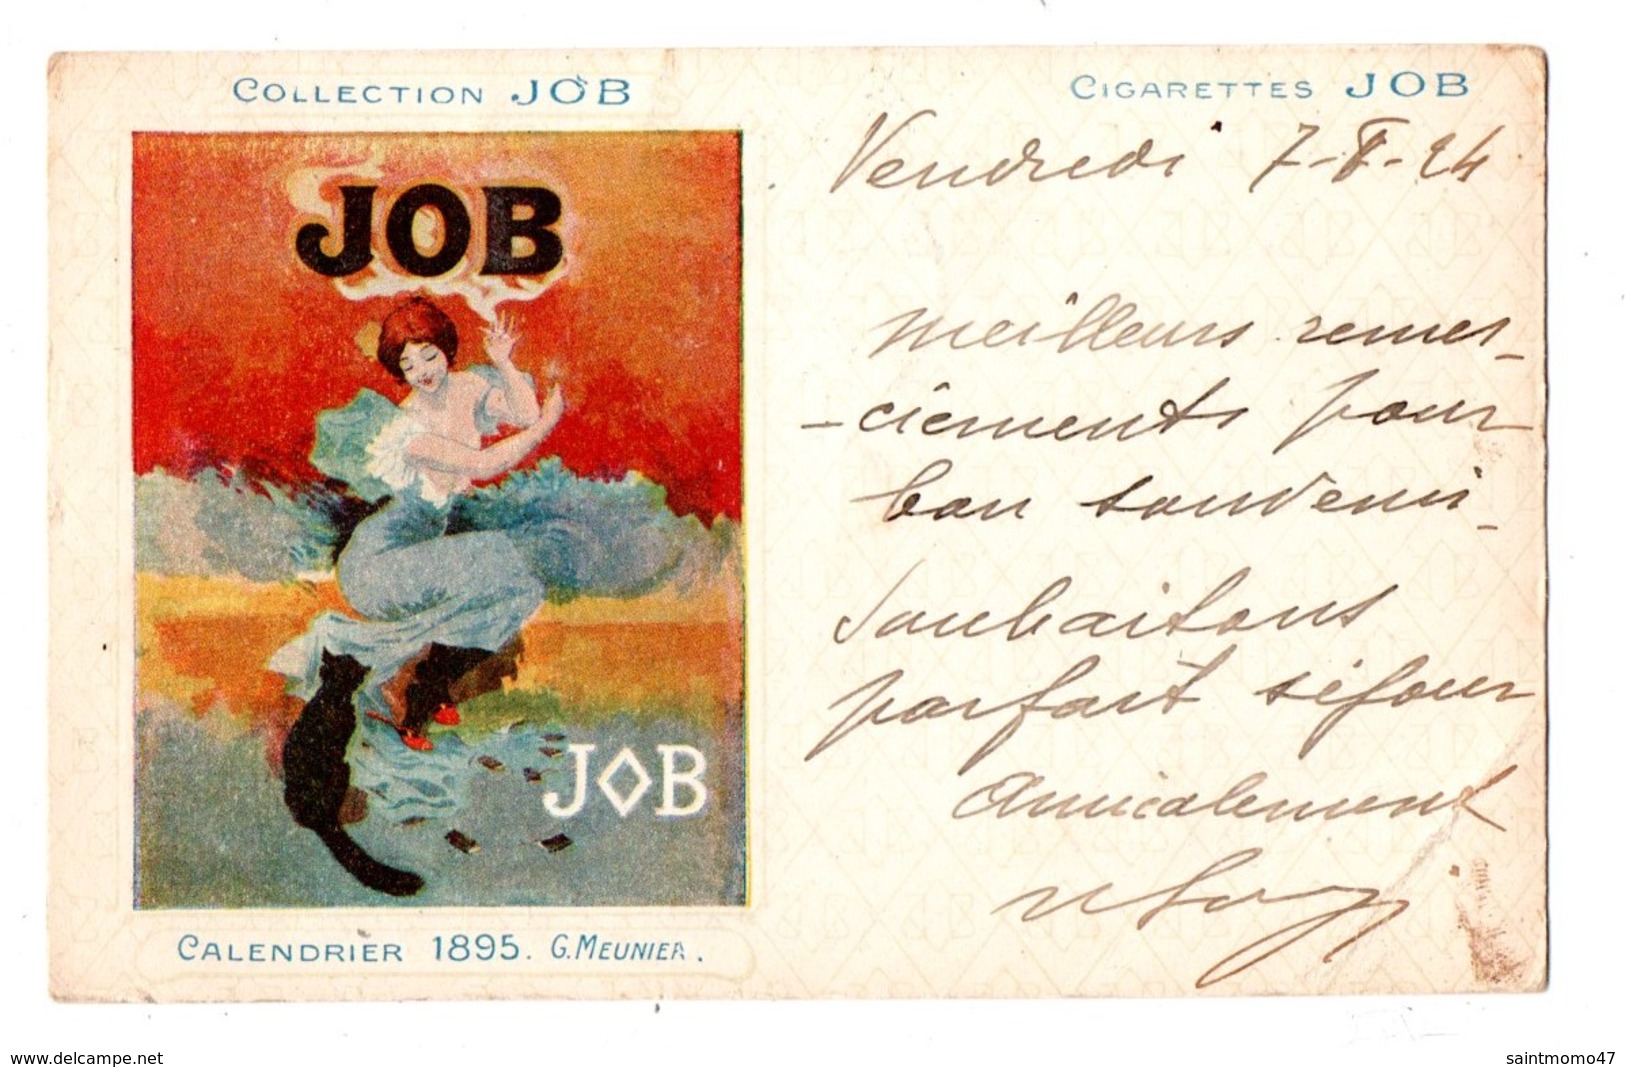 COLLECTION JOB
CIGARETTES JOB
JOB
JOB
CALENDRIER 1895. G. MEUNIER.
Vendredi 7-X-24
meilleurs remer-
-ciements pour
bon souvenir-
Souhaitons
parfait séjour
Amicalement
www.delcampe.net
saintmomo47